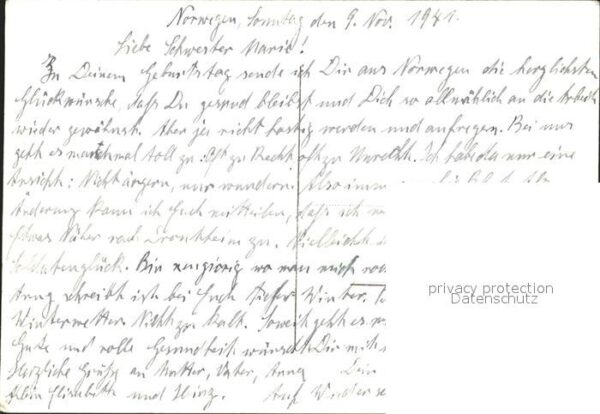 Norwegen, Sonntag den 9. Nov. 1941.
Liebe Schwester Marie!
Zu Deinem Geburtstag sende ich Dir aus Norwegen die herzlichsten
Glückwünsche, daß Du gesund bleibst und Dich so allmählich an die Arbeit
wieder gewöhnst. Aber ja nicht hastig werden und aufregen. Bei uns
geht es manchmal toll zu. Oft zu Recht oft zu Unrecht. Ich habe da nur eine
Ansicht: Nicht ärgern, nur wundern. Also
Änderung kann ich Euch mitteilen, daß ich
Etwas Näher nach Trontheim zu. Vielleicht
Soldatenglück. Bin neugierig wo man mich
Anna schreibt ist bei Euch tiefer Winter.
Winterwetter. Nicht zu kalt. Soweit geht es
Gute und volle Gesundheit wünscht Dir
Herzliche Grüße an Mutter, Vater, Anna Dein
Elisabeth und Heinz. Auf Wieder
privacy protection
Datenschutz